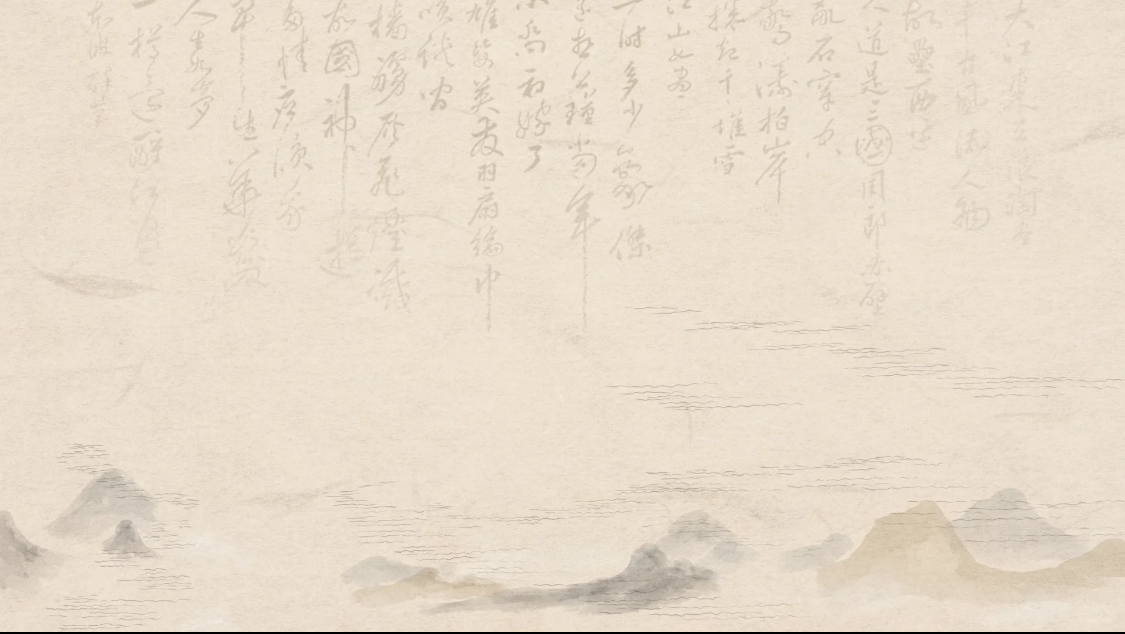 大江東去浪淘盡
千古風流人物
故壘西邊
人道是三國周郎赤壁
亂石穿空
驚濤拍岸
捲起千堆雪
江山如畫
一時多少豪傑
遙想公瑾當年
小喬初嫁了
雄姿英發羽扇綸巾
談間
檣艣灰飛煙滅
故國神
多情應笑我
早生華髮
人夢
一樽還酹江